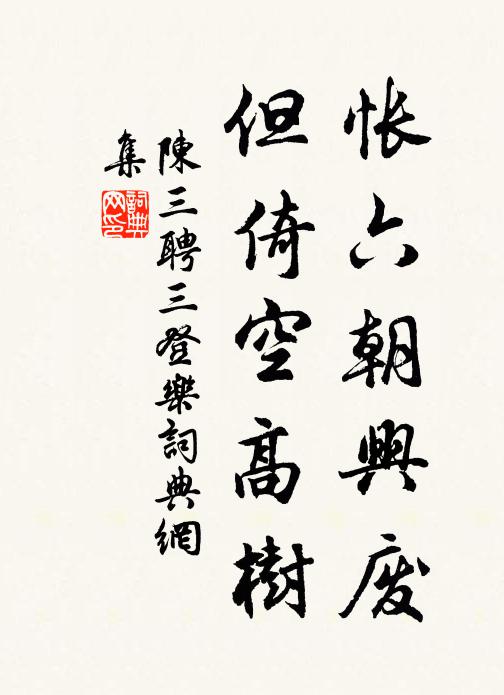 悵六朝興廢
但倚空高樹
陳三聘三登樂詞典網
集
詞典網印